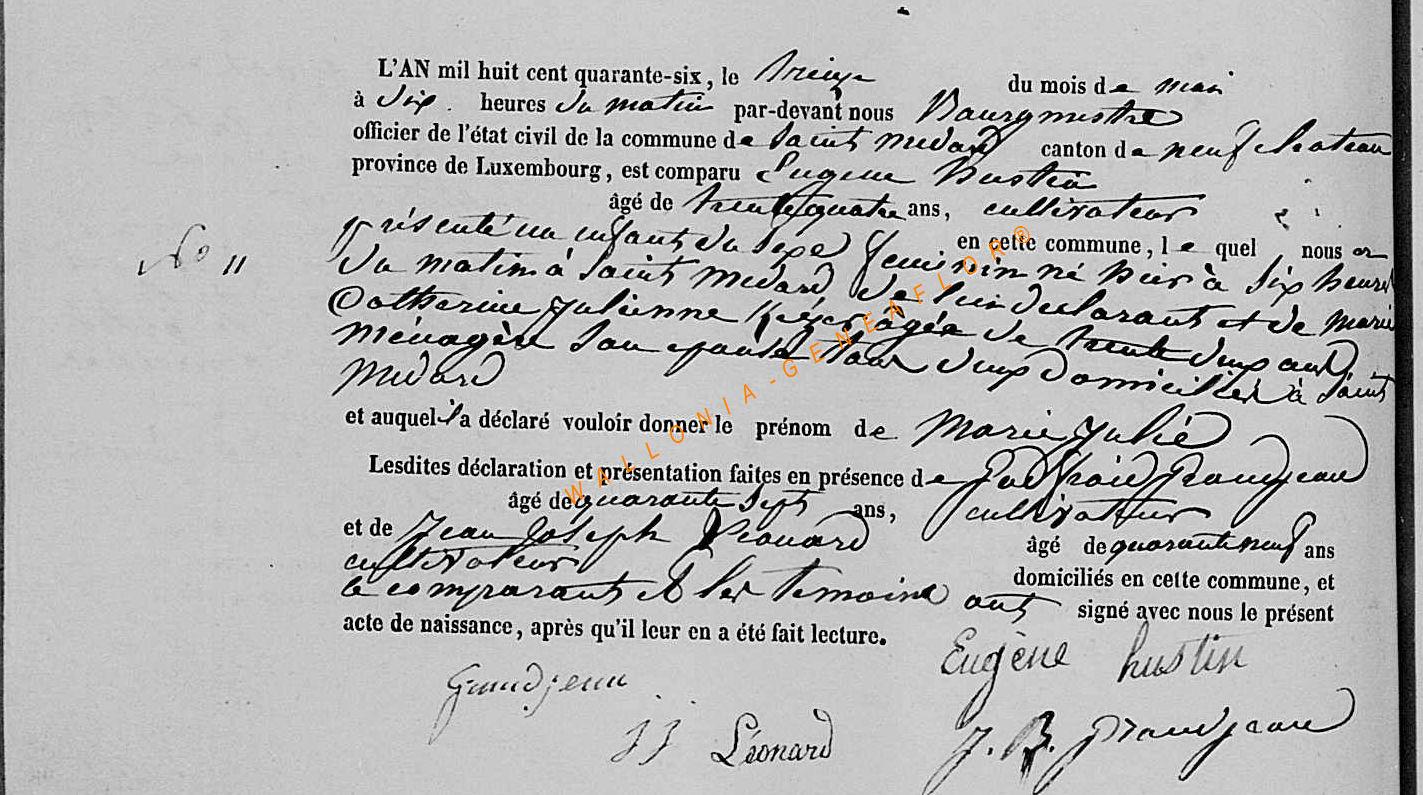 L'AN mil huit cent quarante-six, le treize du mois de mai
à six heures du matin par-devant nous Bourgmestre
officier de l'état civil de la commune de Saint Médard canton de neufchateau
province de Luxembourg, est comparu Eugene hustin
âgé de trente quatre ans, cultivateur
en cette commune, lequel nous a
No 11
présenté un enfant du sexe feminin né hier à six heures
du matin à Saint Medard de lui declarant et de Marie
Catherine Julienne âgée de trente deux ans
ménagère son epouse tous deux domiciliés à Saint
Medard
et auquel il a déclaré vouloir donner le prénom de Marie Julie
Lesdites déclaration et présentation faites en présence de Grandjean
âgé de quarante sept ans, cultivateur
et de Jean Joseph Léonard âgé de quarante neuf ans
cultivateur domiciliés en cette commune, et
le comparant et les temoins ont signé avec nous le présent
acte de naissance, après qu'il leur en a été fait lecture.
Eugène hustin
Grandjean
J J Léonard
J. B. Grandjean
WALLONIA-GENEAFLOR®